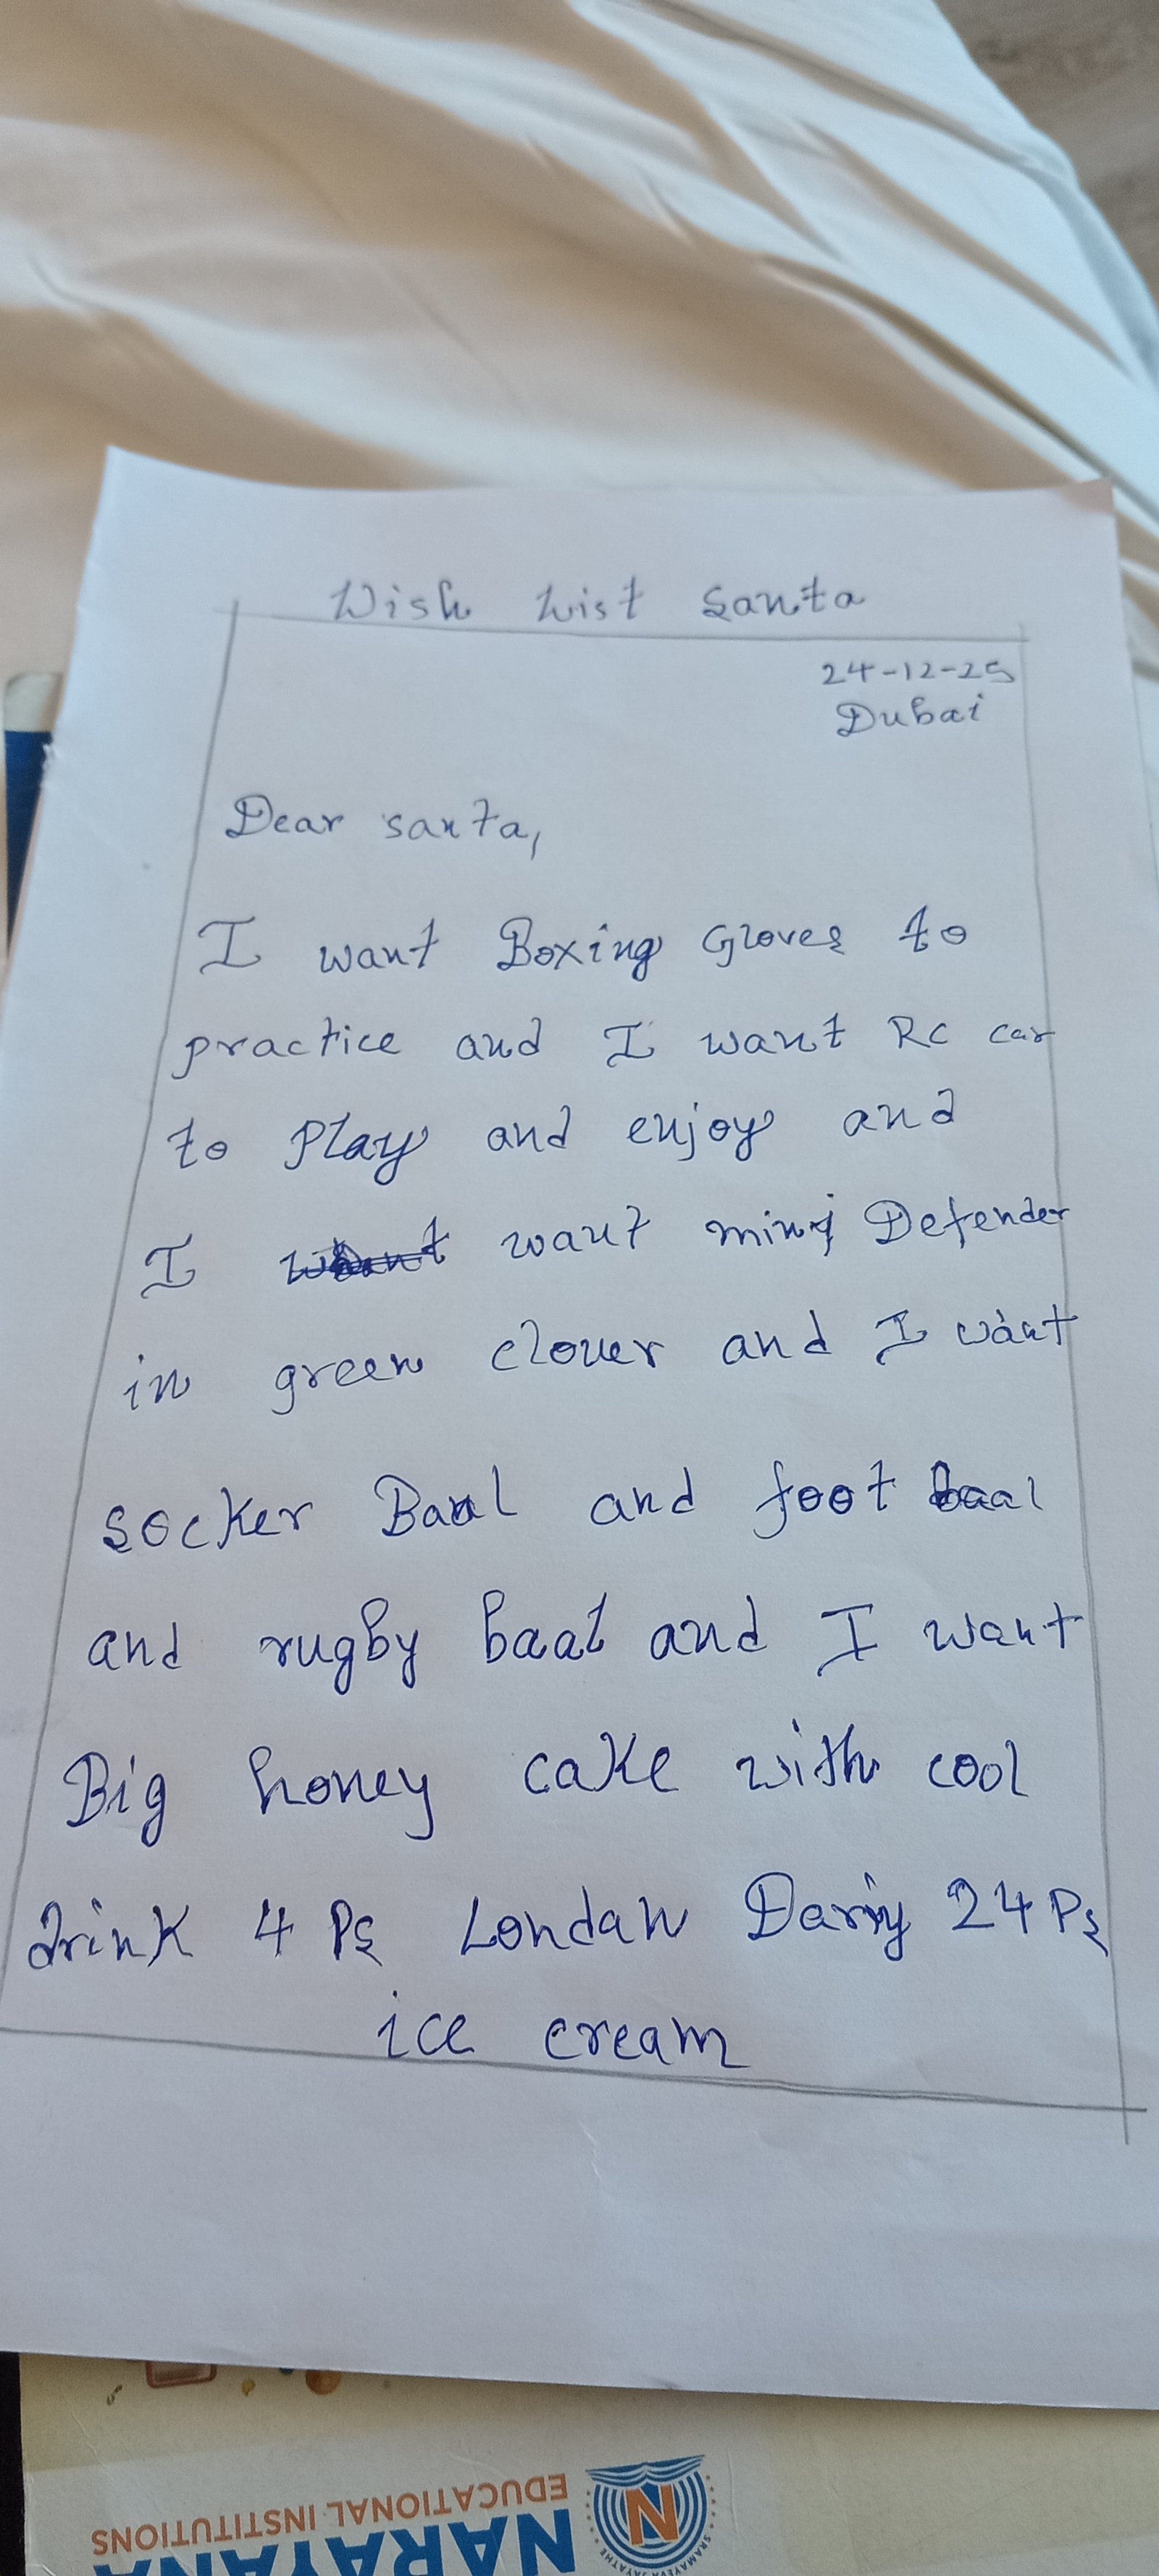 Wish List Santa
24-12-25
Dubai
Dear santa,
I want Boxing Gloves to
practice and I want Rc car
to Play and enjoy and
I want want mini Defender
in green clouer and I want
socker Baal and foot baal
and rugby baal and I want
Big honey cake with cool
drink 4 Ps Londan Dariy 24 Ps
ice cream
NARAYANA
EDUCATIONAL INSTITUTIONS
N
SRAMAYEVA JAYATHE